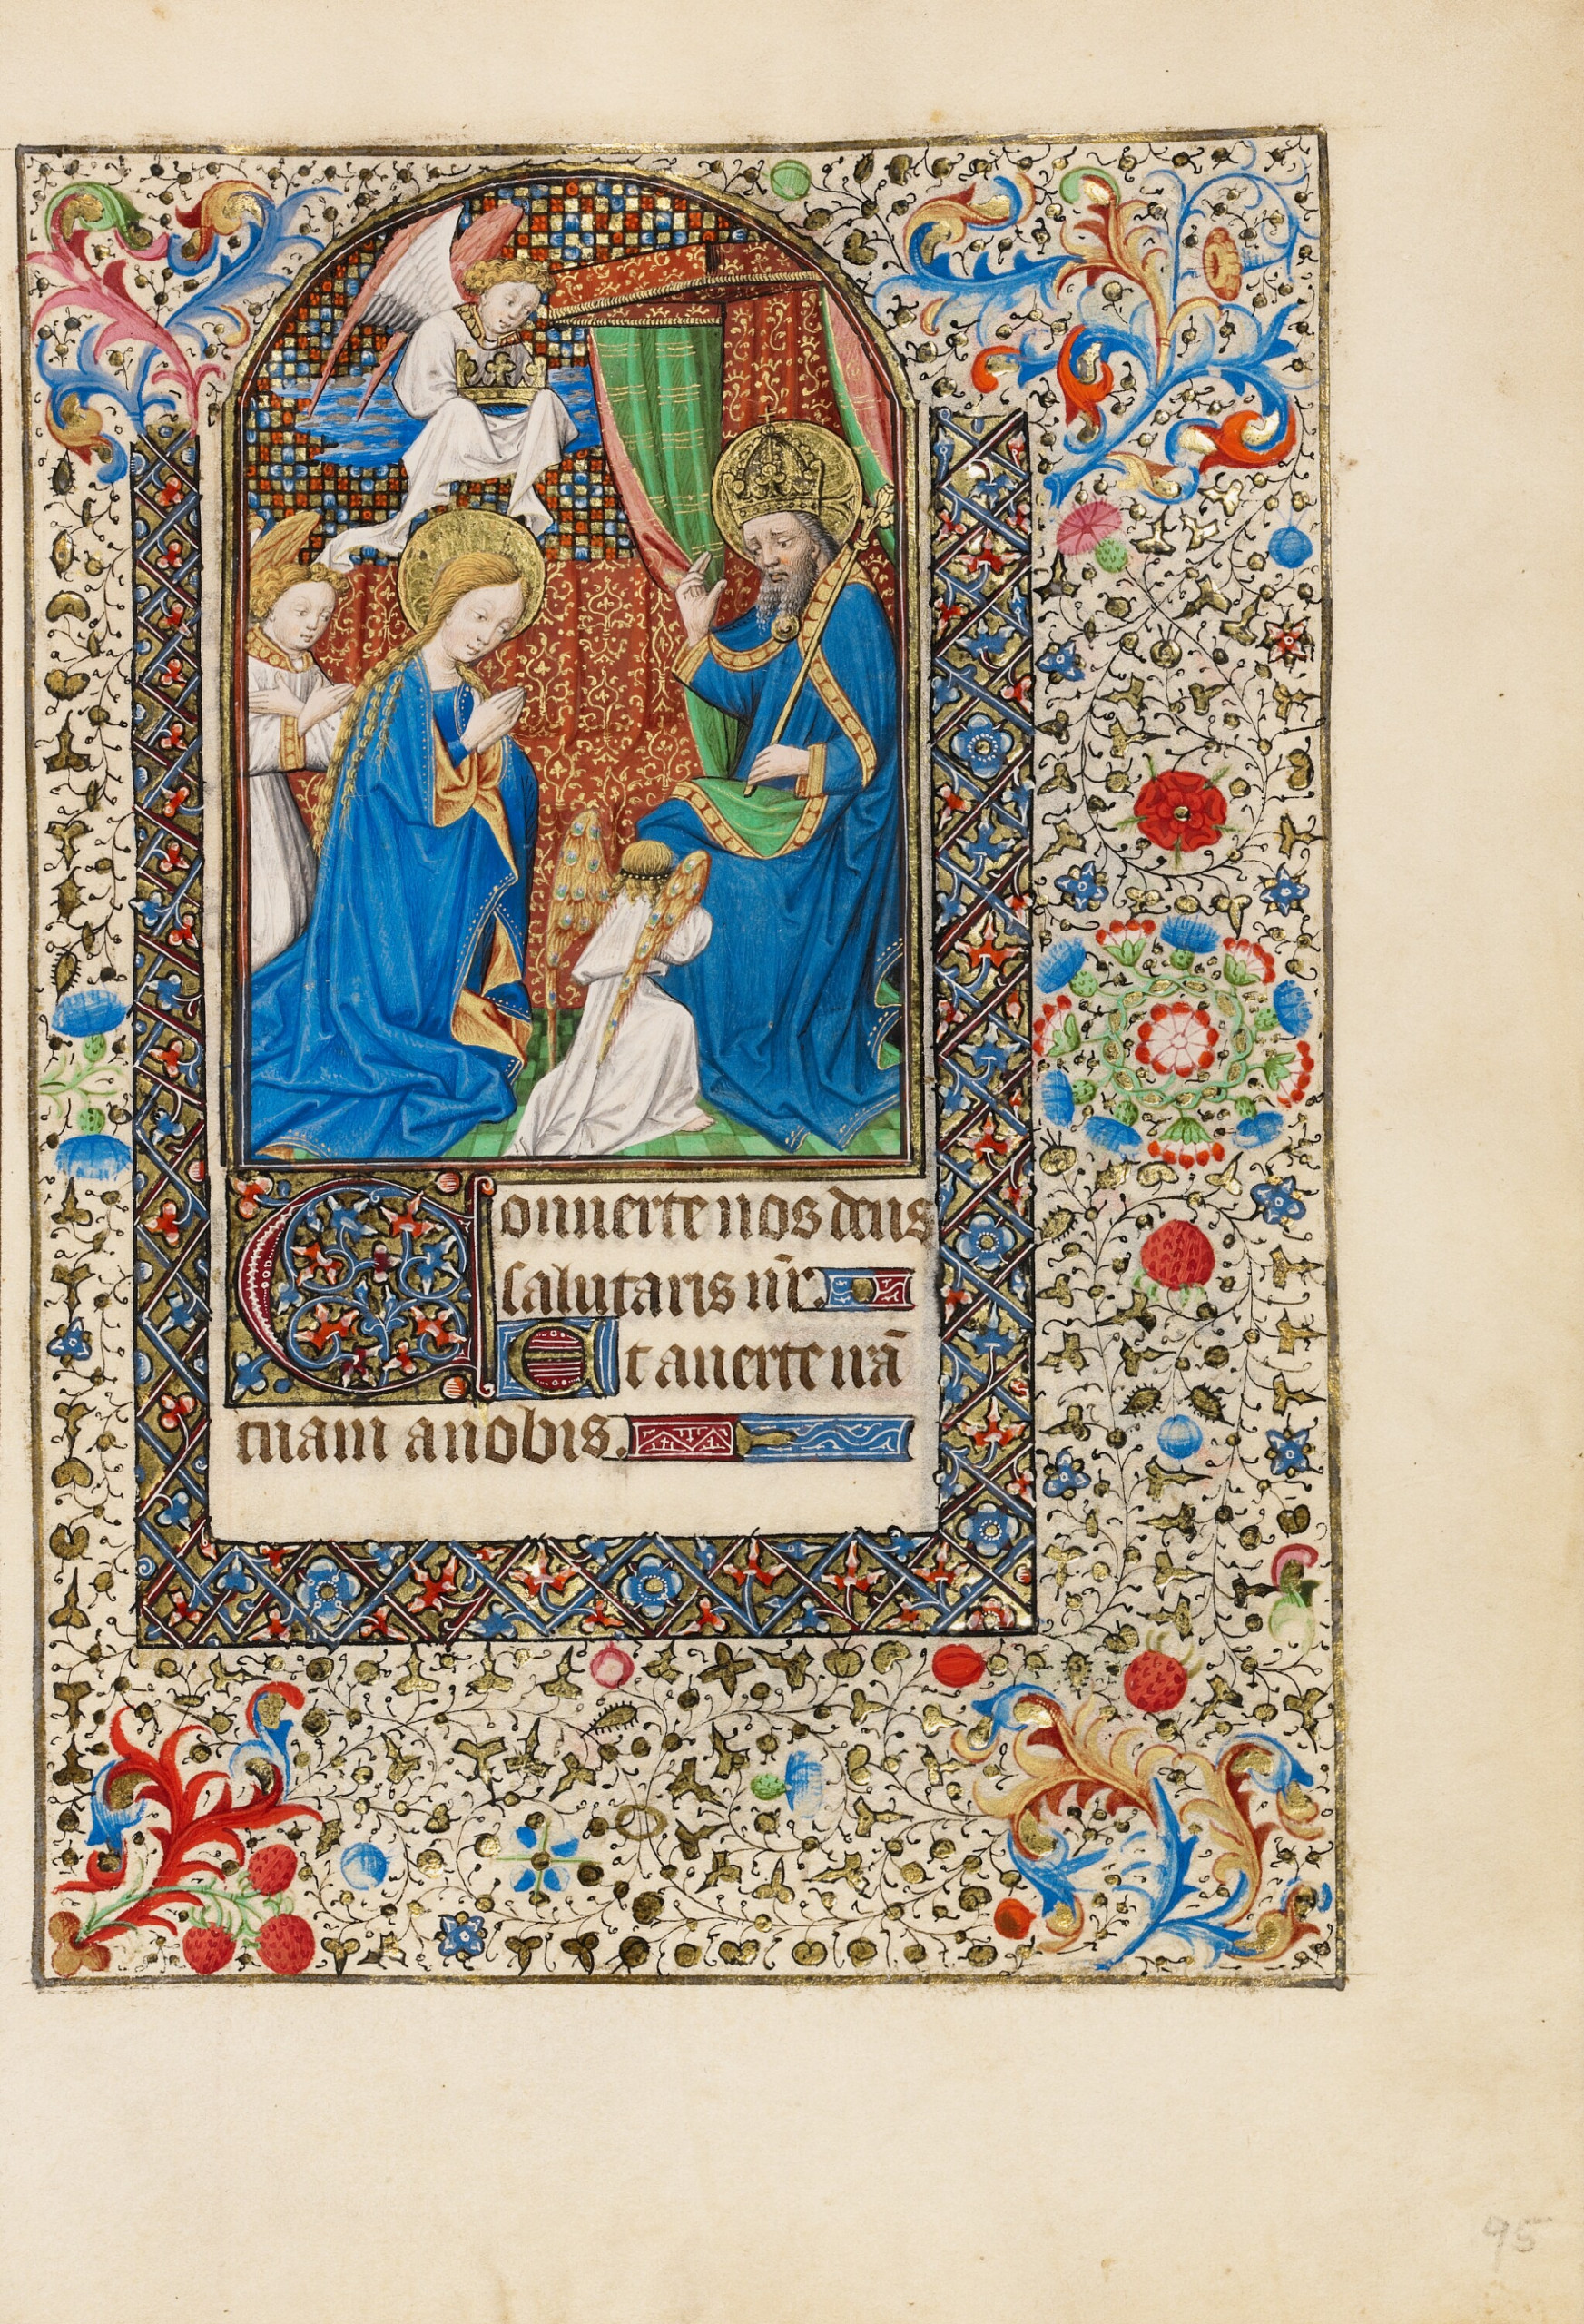 Conuerte nos deus
salutaris nr̄.
Et auerte irā
tuam a nobis.
95